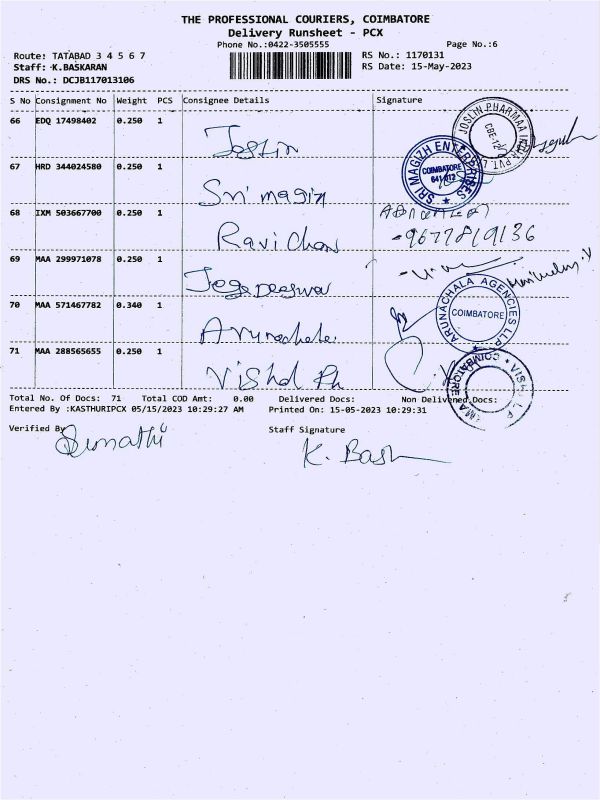 THE PROFESSIONAL COURIERS, COIMBATORE
Delivery Runsheet - PCX
Phone No.:0422-3505555 Page No.:6
Route: TATABAD 3 4 5 6 7 RS No.: 1170131
Staff: K.BASKARAN RS Date: 15-May-2023
DRS No.: DCJB117013106
S No Consignment No Weight PCS Consignee Details Signature
66 EDQ 17498402 0.250 1
Joslin
JOSLIN PHARMAA
67 HRD 344024580 0.250 1
Sri magizh
SRI MAGIZH ENTERPRISES COIMBATORE 641 012
68 IXM 503667700 0.250 1
Ravi Chan
9677819136
69 MAA 299971078 0.250 1
Manivelan.V
70 MAA 571467782 0.340 1
Arunachala
ARUNACHALA AGENCIES LLP COIMBATORE
71 MAA 288565655 0.250 1
Vishal Ph
COIMBATORE
Total No. Of Docs: 71 Total COD Amt: 0.00 Delivered Docs: Non Delivered Docs:
Entered By :KASTHURIPCX 05/15/2023 10:29:27 AM Printed On: 15-05-2023 10:29:31
Verified By Sumathi Staff Signature
K. Bask